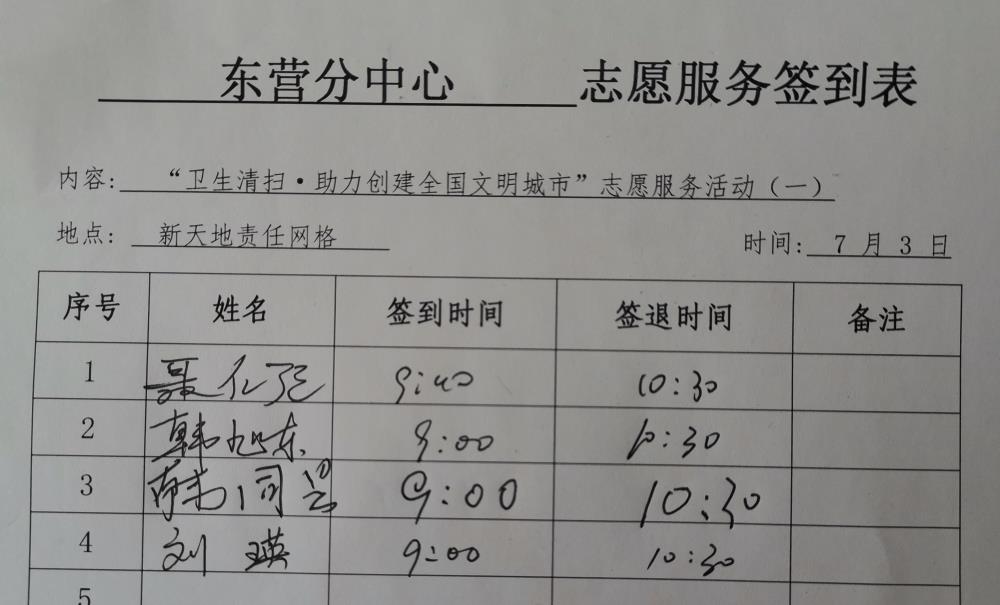 东营分中心 志愿服务签到表
内容: “卫生清扫·助力创建全国文明城市”志愿服务活动(一)
地点: 新天地责任网格 时间: 7 月 3 日
序号 姓名 签到时间 签退时间 备注
1 聂 9:00 10:30
2 韩旭东 9:00 10:30
3 9:00 10:30
4 刘瑛 9:00 10:30
5